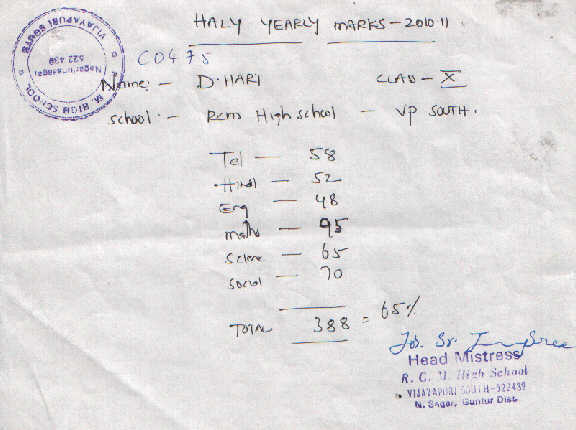 HALY YEARLY MARKS - 2010 11
C0475
Name: - D. HARI CLAS - X
School: - RCM High school - VP SOUTH.
Tel - 58
Hindi - 52
Eng - 48
maths - 95
Science - 65
Social - 70
TOTAL 388 = 65%
Head Mistress
R. C. M. High School
VIJAYAPURI SOUTH-522439
N. Sagar, Guntur Dist.
M. HIGH SCHOOL
VIJAYAPURI SOUTH
Nagarjunasagar
522 439